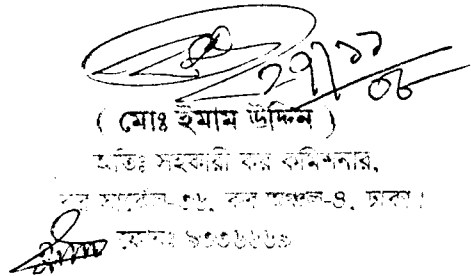 ২৭/১১
০৮
( মোঃ ইমাম উদ্দিন )
অতিঃ সহকারী কর কমিশনার,
কর সার্কেল-৩৬, কর অঞ্চল-৪, ঢাকা।
ফোনঃ